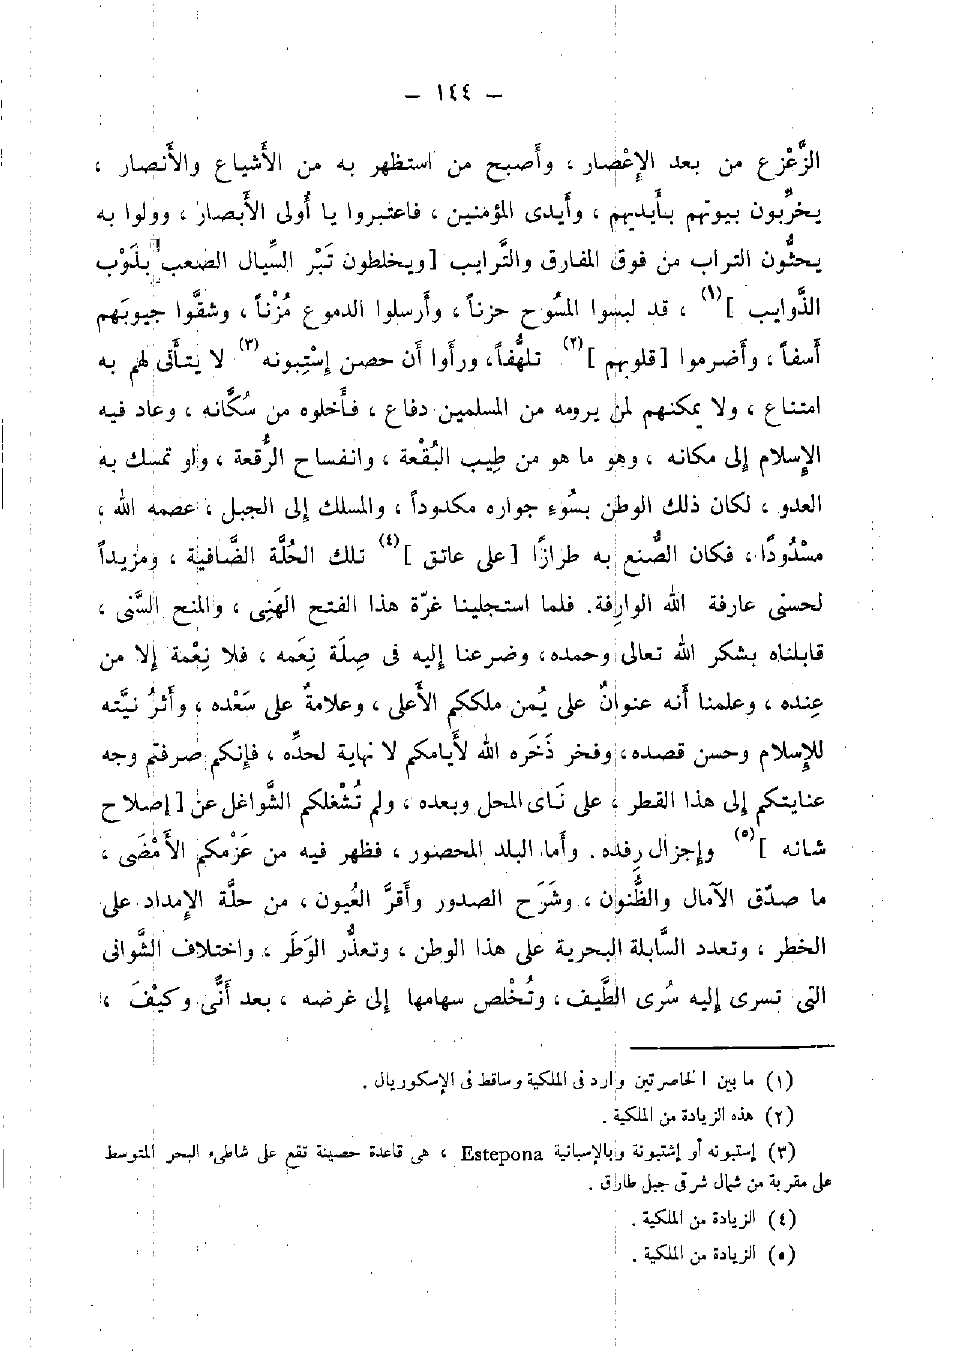 — ١٤٤ —
الزَّعْزع من بعد الإِعْصار ، وأَصبح من استظهر به من الأَشياع والأَنصار ،
يخرِّبون بيوتهم بأَيديهم ، وأَيدى المؤمنين ، فاعتبروا يا أُولى الأَبصار ، وولوا به
يحثُّون التراب من فوق المفارق والتَّرايب [ويخلطون تَبْر السِّبال الصَّعب بلَوْب
الذَّوايب ](١) ، قد لبسوا المسُوح حزناً ، وأَرسلوا الدموع مُزْناً ، وشقُّوا جيوبَهم
أَسفاً ، وأَضرموا [قلوبهم ](٢) تلهُّفاً، ورأَوا أَن حصن إسْتِبونه(٣) لا يتأَتى لهم به
امتناع ، ولا يمكنهم لمن يرومه من المسلمين دفاع ، فأَخلوه من سُكَّانه ، وعاد فيه
الإِسلام إلى مكانه ، وهو ما هو من طِيب البُقْعة ، وانفساح الرُّقعة ، ولو تمسك به
العدو ، لكان ذلك الوطن بسُوءِ جواره مكدوداً ، والمسلك إلى الجبل ، عصمه الله ،
مسْدُودًا ، فكان الصُّنع به طرازًا [على عاتق ](٤) تلك الحُلَّة الضَّافية ، ومزيداً
لحسنى عارفة الله الوارِفة. فلما استجلينا غرّة هذا الفتح الهَنِى ، والمنح السَّنى ،
قابلناه بشكر الله تعالى وحمده، وضرعنا إليه فى صِلَة نِعَمه ، فلا نِعْمة إلا من
عِنده ، وعلمنا أنه عنوانٌ على يُمن ملككم الأَعلى ، وعلامةٌ على سَعْده ، وأَثرُ نيَّته
للإِسلام وحسن قصده، وفخر ذَخَره الله لأَيامكم لا نهاية لحدِّه ، فإنكم صرفتم وجه
عنايتكم إلى هذا القطر ، على نَاى المحل وبعده ، ولم تُشْغلكم الشَّواغل عن [إصلاح
شانه ](٥) وإجزال رِفْده. وأما البلد المحصور ، فظهر فيه من عَزْمكم الأَمْضَى ،
ما صدّق الآمال والظُّنون ، وشَرَح الصدور وأَقرَّ العُيون ، من حلَّة الإِمداد على
الخطر ، وتعدد السَّابلة البحرية على هذا الوطن ، وتعذُّر الوَطَر ، واختلاف الشَّوانى
التى تسرى إليه سُرى الطَّيف، وتُخْلص سهامها إلى غرضه ، بعد أَنَّى وكيْفَ ،
(١) ما بين الخاصرتين وارد فى الملكية وساقط فى الإسكوريال .
(٢) هذه الزيادة من الملكية .
(٣) إستبونه أو إشتبونة وبالإسبانية Estepona ، هى قاعدة حصينة تقع على شاطىء البحر المتوسط
على مقربة من شمال شرق جبل طارق .
(٤) الزيادة من الملكية .
(٥) الزيادة من الملكية .